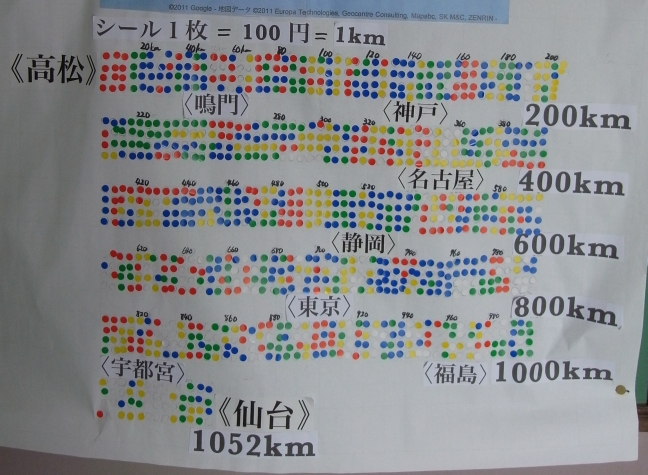 ©2011 Google - 地図データ ©2011 Europa Technologies, Geocentre Consulting, Mapabc, SK M&C, ZENRIN -
シール1枚 = 100 円= 1km
20km 40km 60km 80 100 120 140 160 180 200
《高松》
〈鳴門〉 〈神戸〉 200km
220 280 300 320 360 380
〈名古屋〉 400km
420 440 460 480 500 520 580
〈静岡〉 600km
620 640 660 680 700 740 760 780
〈東京〉 800km
820 840 860 880 920 940 960 980
〈宇都宮〉 〈福島〉 1000km
《仙台》
1052km